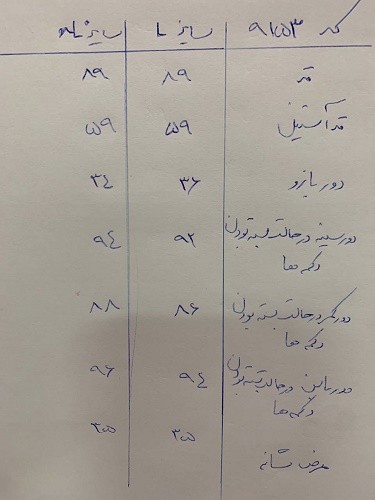 کد ۹۷۵۳ سایز L سایز XL
قد ۸۹ ۸۹
قد آستین ۵۹ ۵۹
دور بازو ۳۶ ۳۴
دور سینه در حالت بسته بودن ۹۲ ۹۴
دکمه ها
دور کمر در حالت بسته بودن ۸۶ ۸۸
دکمه ها
دور باسن در حالت بسته بودن ۹۴ ۹۶
دکمه ها
عرض شانه ۳۵ ۳۵